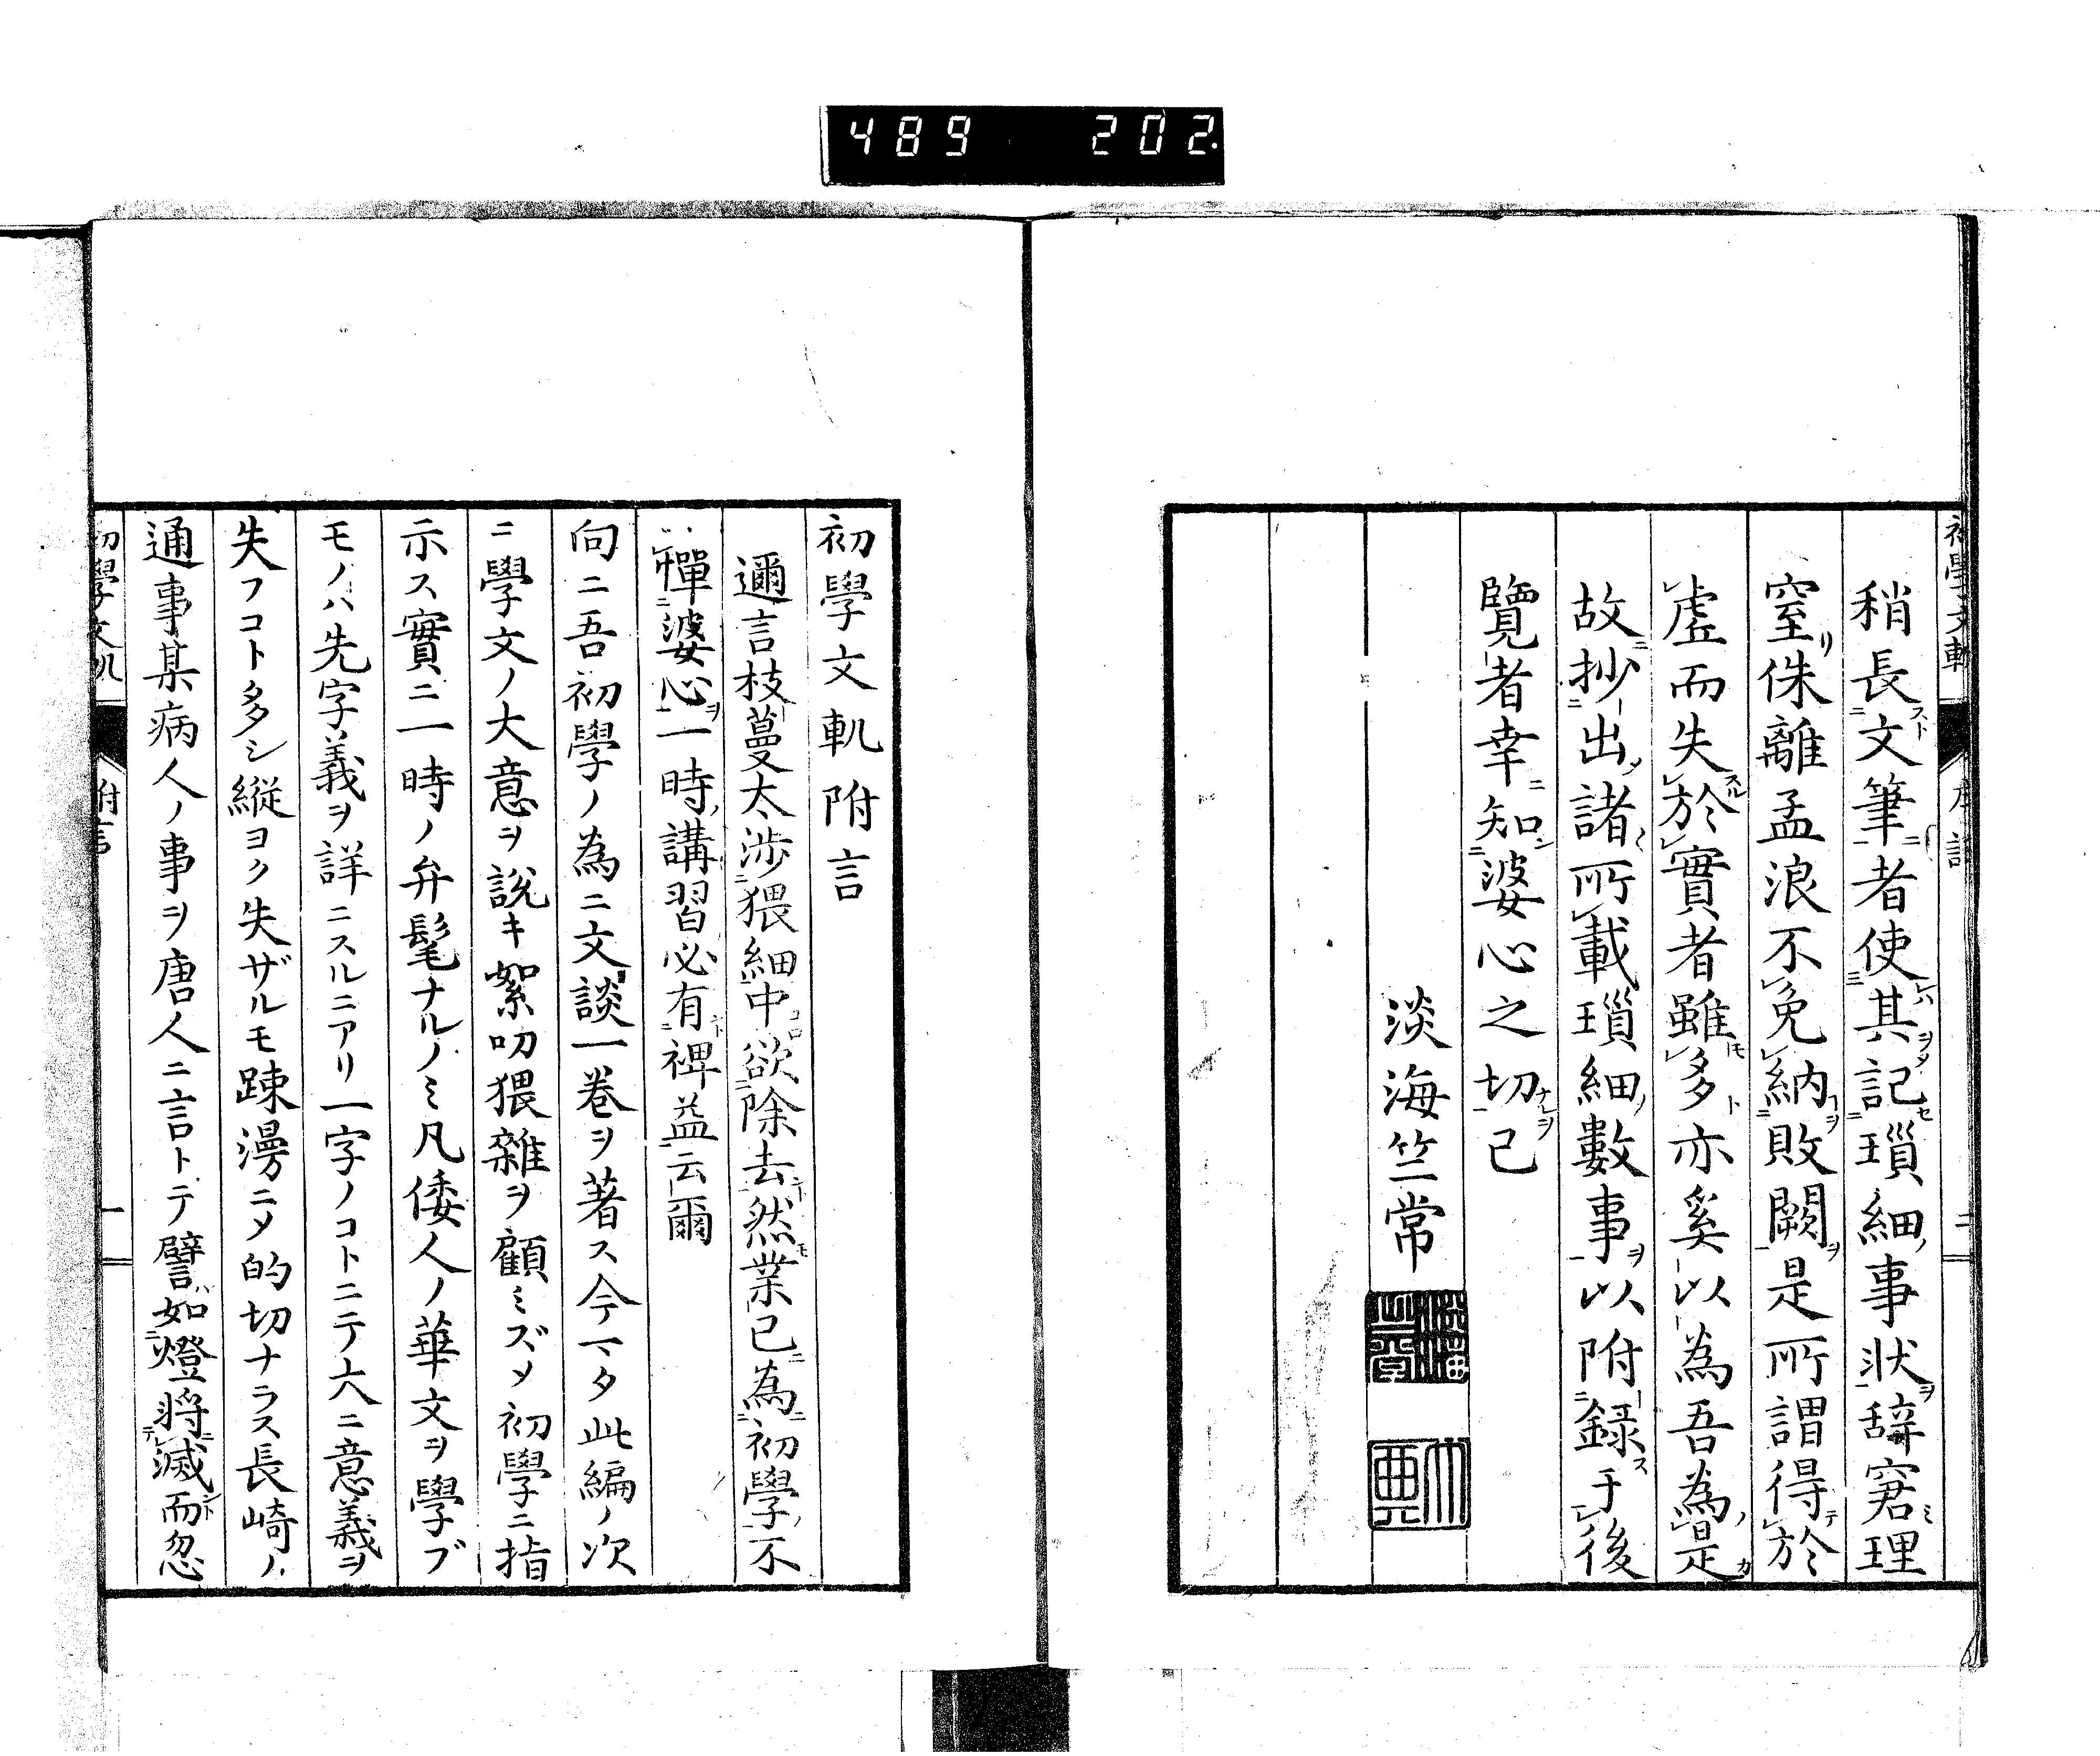 489 202.
稍長文筆者使其記瑣細事状辭窘理
窒侏離孟浪不免納敗闕是所謂得於
虚而失於實者雖多亦奚以為吾為是
故抄出諸所載瑣細數事以附録于後
覽者幸知婆心之切已
淡海竺常
初學文軌附言
邇言枝蔓太渉猥細中欲除去然業已為初學不
憚婆心一時講習必有裨益云爾
向ニ吾初學ノ為ニ文談一巻ヲ著ス今マタ此編ノ次
ニ學文ノ大意ヲ説キ絮叨猥雜ヲ顧ミズメ初學ニ指
示ス實ニ一時ノ弁髦ナルノミ凡倭人ノ華文ヲ學ブ
モノハ先字義ヲ詳ニスルニアリ一字ノコトニテ大ニ意義ヲ
失フコト多シ縦ヨク失ザルモ踈漫ニメ的切ナラス長崎ノ
通事某病人ノ事ヲ唐人ニ言トテ譬如燈將滅而忽
附言
一